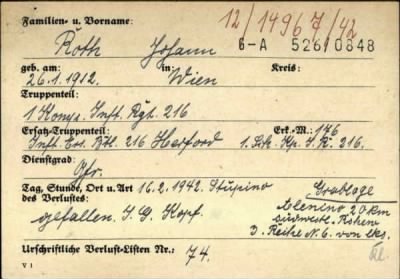 Familien- u. Vorname: 12/1496 7/42
Roth Johann G-A 526/0848
geb. am: in: Kreis:
26.1.1912. Wien
Truppenteil:
1 Komp. Inft. Rgt. 216
Ersatz-Truppenteil: Erk.-M.: 176
Inft. Ers. Btl. 216 Herford 1. Sch. Kp. I.R. 216.
Dienstgrad:
Gfr.
Tag, Stunde, Ort u. Art 16.2.1942. Stupino Grablage
des Verlustes: 20 km
gefallen. I.G. Kopf. südwestl. Rshew
3. Reihe N. 6. von lks.
Urschriftliche Verlust-Listen Nr.: 74.
V 1